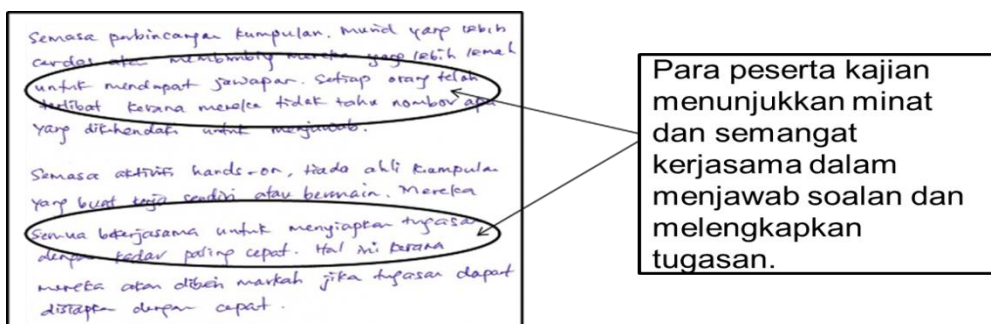 Semasa perbincangan kumpulan, murid yang lebih
cerdas akan membimbing mereka yang lebih lemah
untuk mendapat jawapan. Setiap orang telah
terlibat kerana mereka tidak tahu nombor apa
yang dikehendaki untuk menjawab.
Semasa aktiviti hands-on, tiada ahli kumpulan
yang buat kerja sendiri atau bermain. Mereka
semua bekerjasama untuk menyiapkan tugasan
dengan kadar paling cepat. Hal ini kerana
mereka akan diberi markah jika tugasan dapat
disiapkan dengan cepat.
Para peserta kajian
menunjukkan minat
dan semangat
kerjasama dalam
menjawab soalan dan
melengkapkan
tugasan.